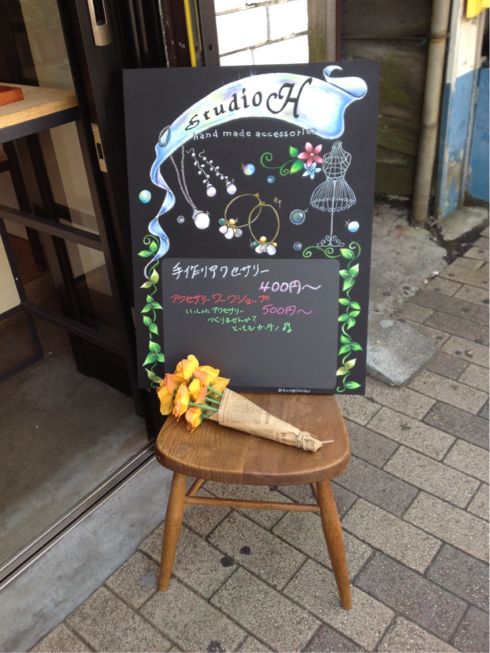 Studio H
hand made accessories
手作りアクセサリー
400円〜
アクセサリーワークショップ
500円〜
いっしょにアクセサリー
つくりませんか?
とってもカンタン♫